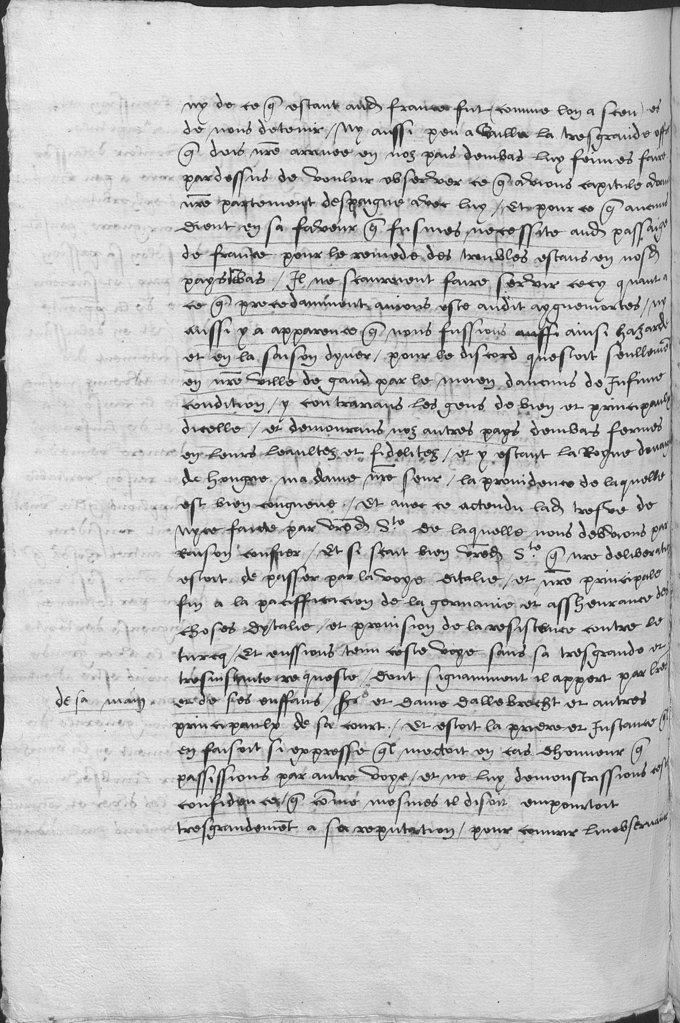 ny de ce q̃ estant aud̃ france fut / comme lon a sceu / es
de nous detenir / Ny aussi peu a vallu la tresgrande off
q̃ dois nr̃e arrivee en noz pais dembas luy feimes faire
pardessus de vouloir observer ce q̃ avions capitule
nr̃e partement despaigne avec luy / Et pour ce q̃ aucuns
dient en sa faveur q̃ fusmes necessite aud̃ passaige
de france pour le remede des troubles estans en nosd̃
pays bas / Il ne scauroient faire servir cecy quant a
ce q̃ precedamment avions este audit ayguemortes / ny
aussi y a apparence q̃ nous fussions ainsi hazarde
et en la saison dyver / pour le discord questoit seullemẽt
en nr̃e ville de gand par le moien daucuns de Infime
condition / y contrarians les gens de bien et principaulx
dicelle / et demourans noz autres pays dembas fermes
en leurs leaultez et fidelitez / et y estant la Royne douaig
de hongrie ma dame nr̃e seur / la providence de laquelle
est bien congneue / Et avec ce actendu lad̃ tresve de
Nyce faicte par vr̃ed̃ Sᵗᵉ de laquelle nous debvions par
Raison confier / Et si scait bien vr̃ed̃ Sᵗᵉ q̃ nr̃e deliberatiõ
estoit de passer par la voye ditalie / et nr̃e principale
fin a la paciffication de la germanie et assheurance des
choses dytalie / et provision de la resistence contre le
turcq / Et eussions tenu ceste voye sans sa tresgrande et
tresinstante requeste / dont signamment il appert par lr̃es
de sa main
et de ses enffans / et dame dallebrecht et autres
principaulx de sa court / Et estoit la priere et Instance q̃l
en faisoit si expresse q̃l mectoit en cas dhonneur q̃
passissions par autre voye / et ne luy demonstrissions ceste
confidence / q̃ cõme mesmes il disoit emportoit
tresgrandemẽt a sa reputation / pour couvrir linobservance